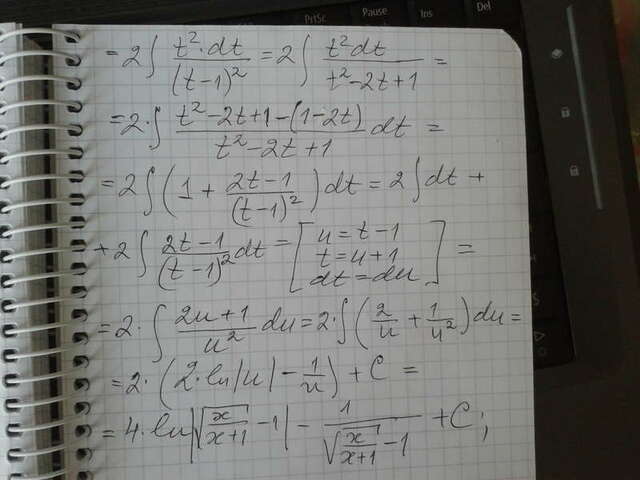 PrtSc Pause Ins Del
= 2 ∫ t²·dt/(t-1)² = 2 ∫ t²dt/(t²-2t+1) =
= 2·∫ (t²-2t+1-(1-2t))/(t²-2t+1) dt =
= 2∫(1 + (2t-1)/(t-1)²)dt = 2∫dt +
+ 2∫ (2t-1)/(t-1)² dt = [u = t-1
t = u+1
dt = du] =
= 2·∫ (2u+1)/u² du = 2·∫(2/u + 1/u²)du =
= 2·(2·ln|u| - 1/u) + C =
= 4·ln|√(x/(x+1)) - 1| - 1/(√(x/(x+1)) - 1) + C;